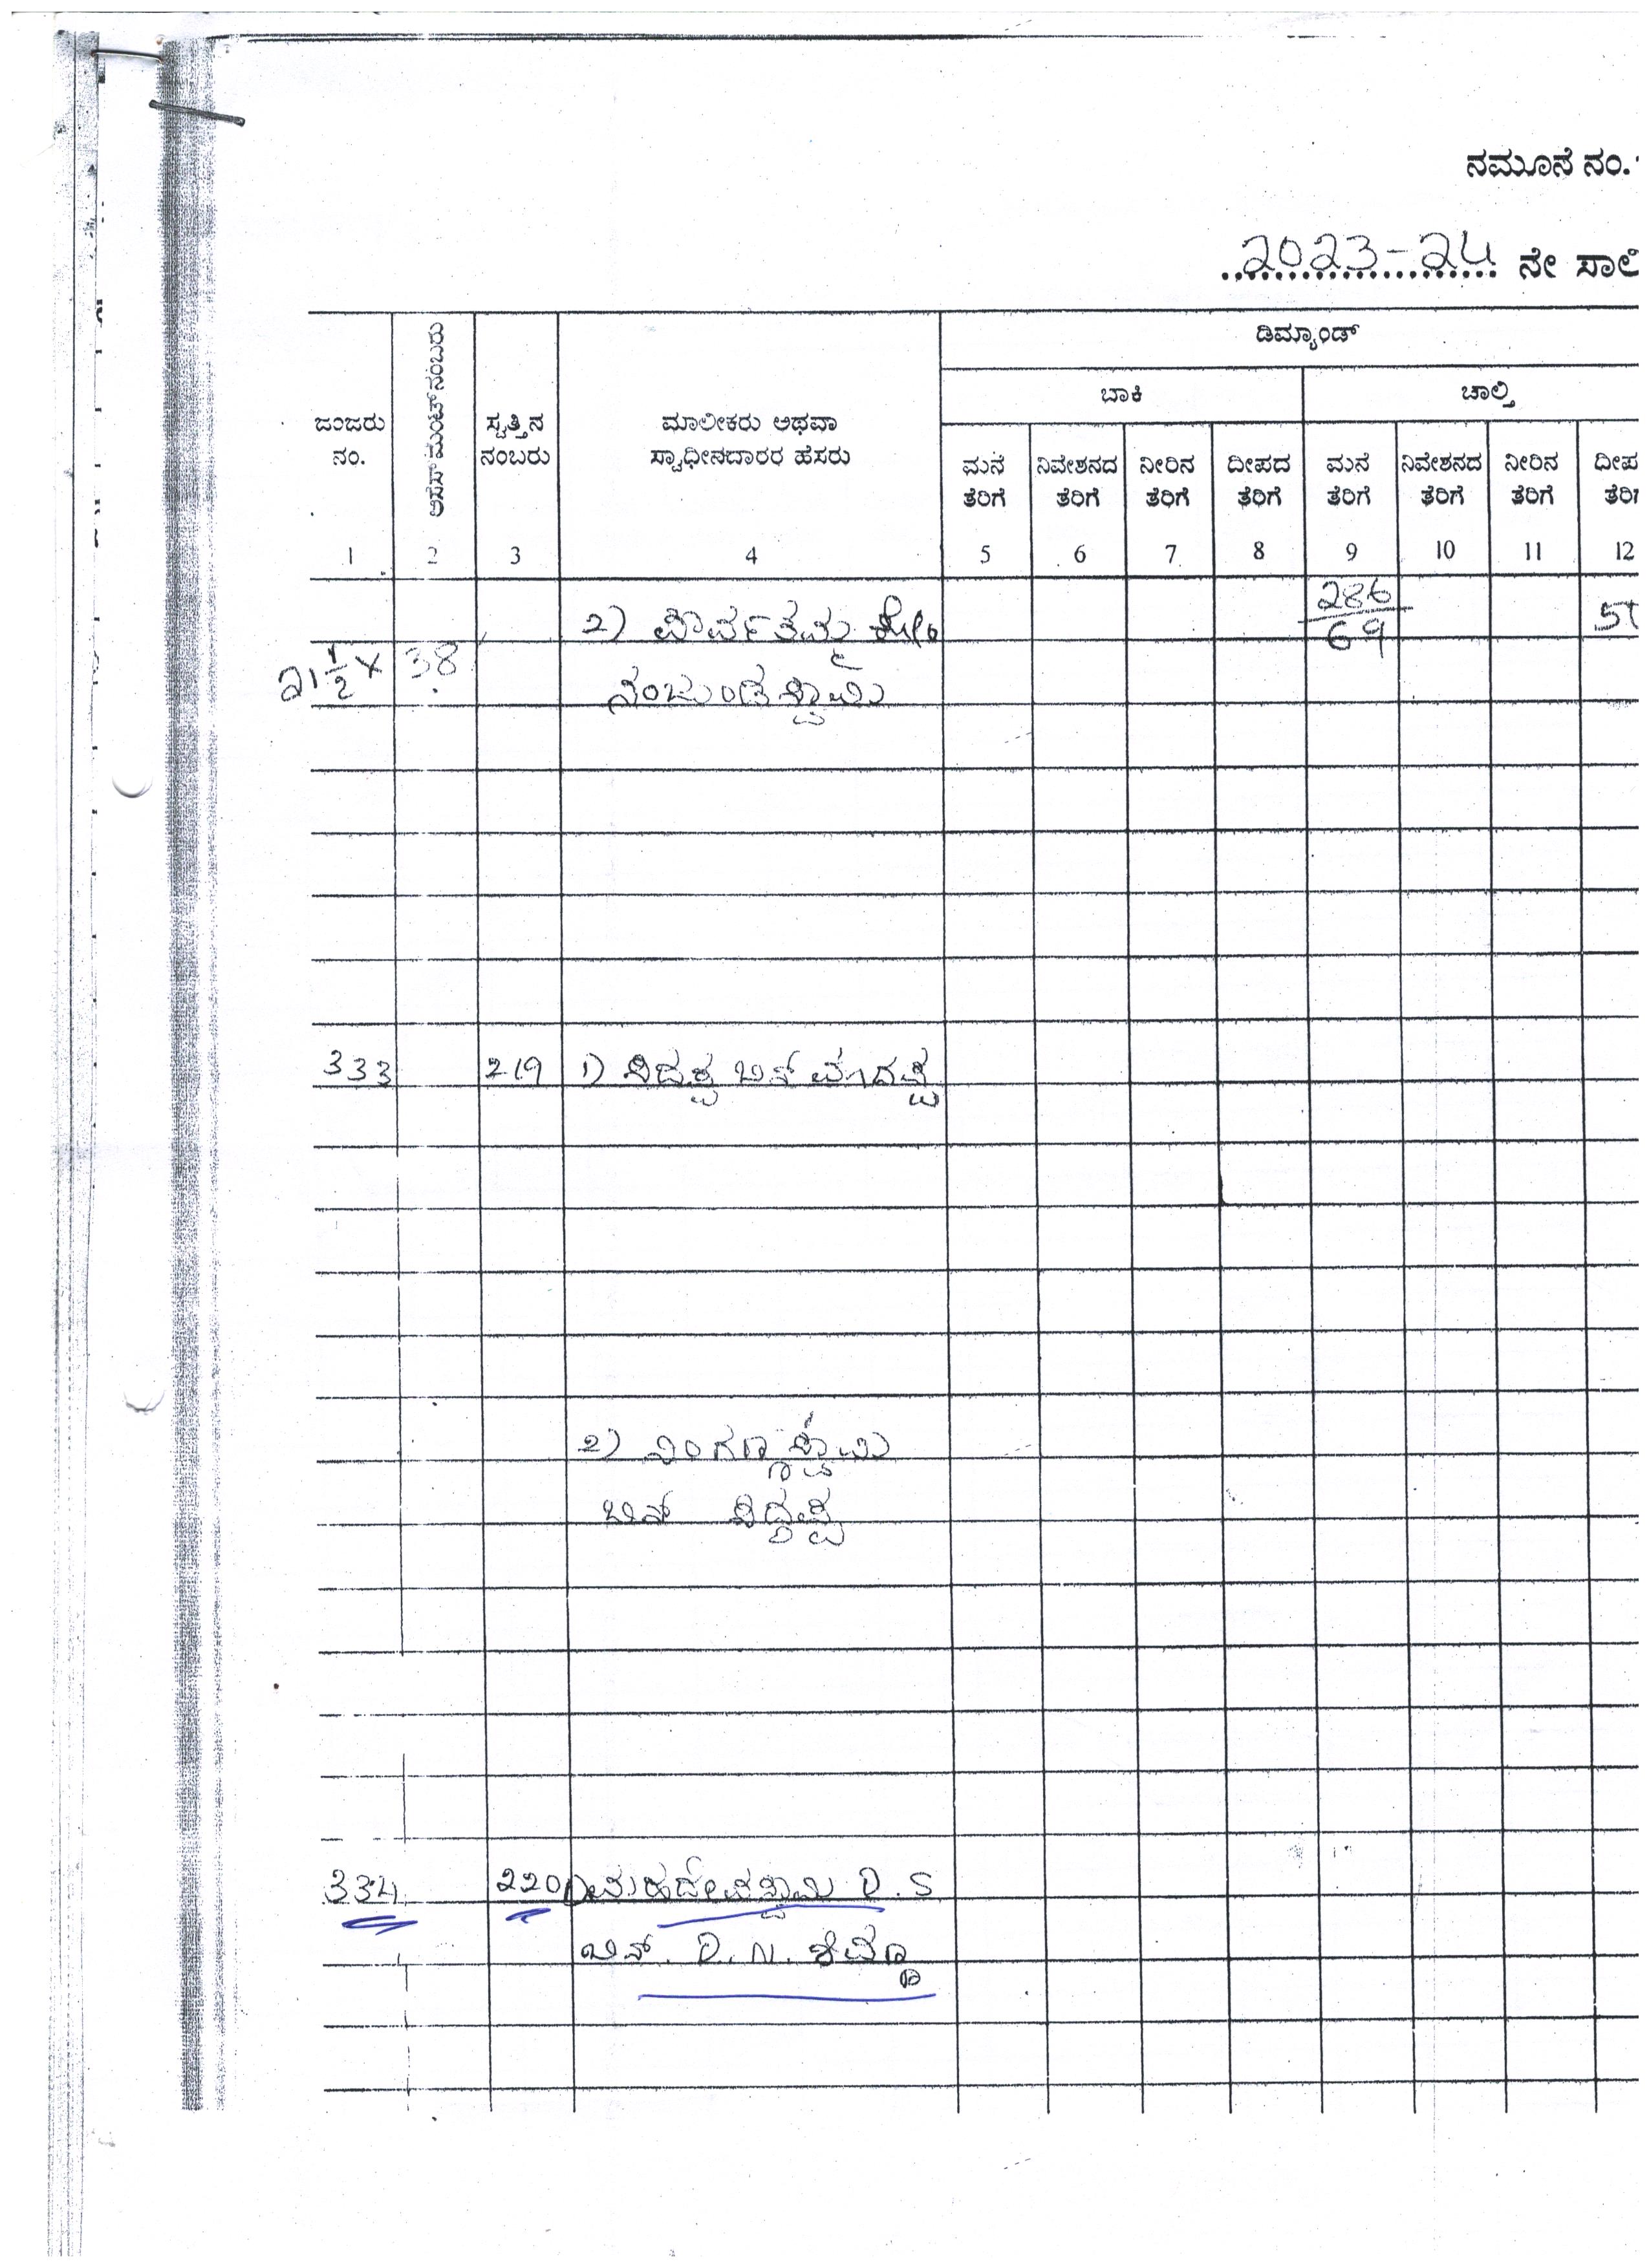 ನಮೂನೆ ನಂ.
2023-24 ನೇ ಸಾಲಿ
ಡಿಮ್ಯಾಂಡ್
ಬಾಕಿ ಚಾಲ್ತಿ
ಜಂಜರು ನಂ. ಅಸೆಸ್‌ಮೆಂಟ್ ನಂಬರು ಸ್ವತ್ತಿನ ನಂಬರು ಮಾಲೀಕರು ಅಥವಾ ಸ್ವಾಧೀನದಾರರ ಹೆಸರು
ಮನೆ ತೆರಿಗೆ ನಿವೇಶನದ ತೆರಿಗೆ ನೀರಿನ ತೆರಿಗೆ ದೀಪದ ತೆರಿಗೆ ಮನೆ ತೆರಿಗೆ ನಿವೇಶನದ ತೆರಿಗೆ ನೀರಿನ ತೆರಿಗೆ ದೀಪ ತೆರಿ
1 2 3 4 5 6 7 8 9 10 11 12
2) ಪಾರ್ವತಮ್ಮ ಕೋಂ 286
69
21 1/2 X 38
ನಂಜುಂಡಸ್ವಾಮಿ
333 219 1) ಸಿದಪ್ಪ ಬಿನ್ ಮಾದಪ್ಪ
2) ನಿಂಗಣ್ಣಸ್ವಾಮಿ
ಬಿನ್ ಸಿದ್ದಪ್ಪ
334 220 1) ಮಹದೇವಸ್ವಾಮಿ D.S
ಬಿನ್. D.N. ಶಿವಣ್ಣ